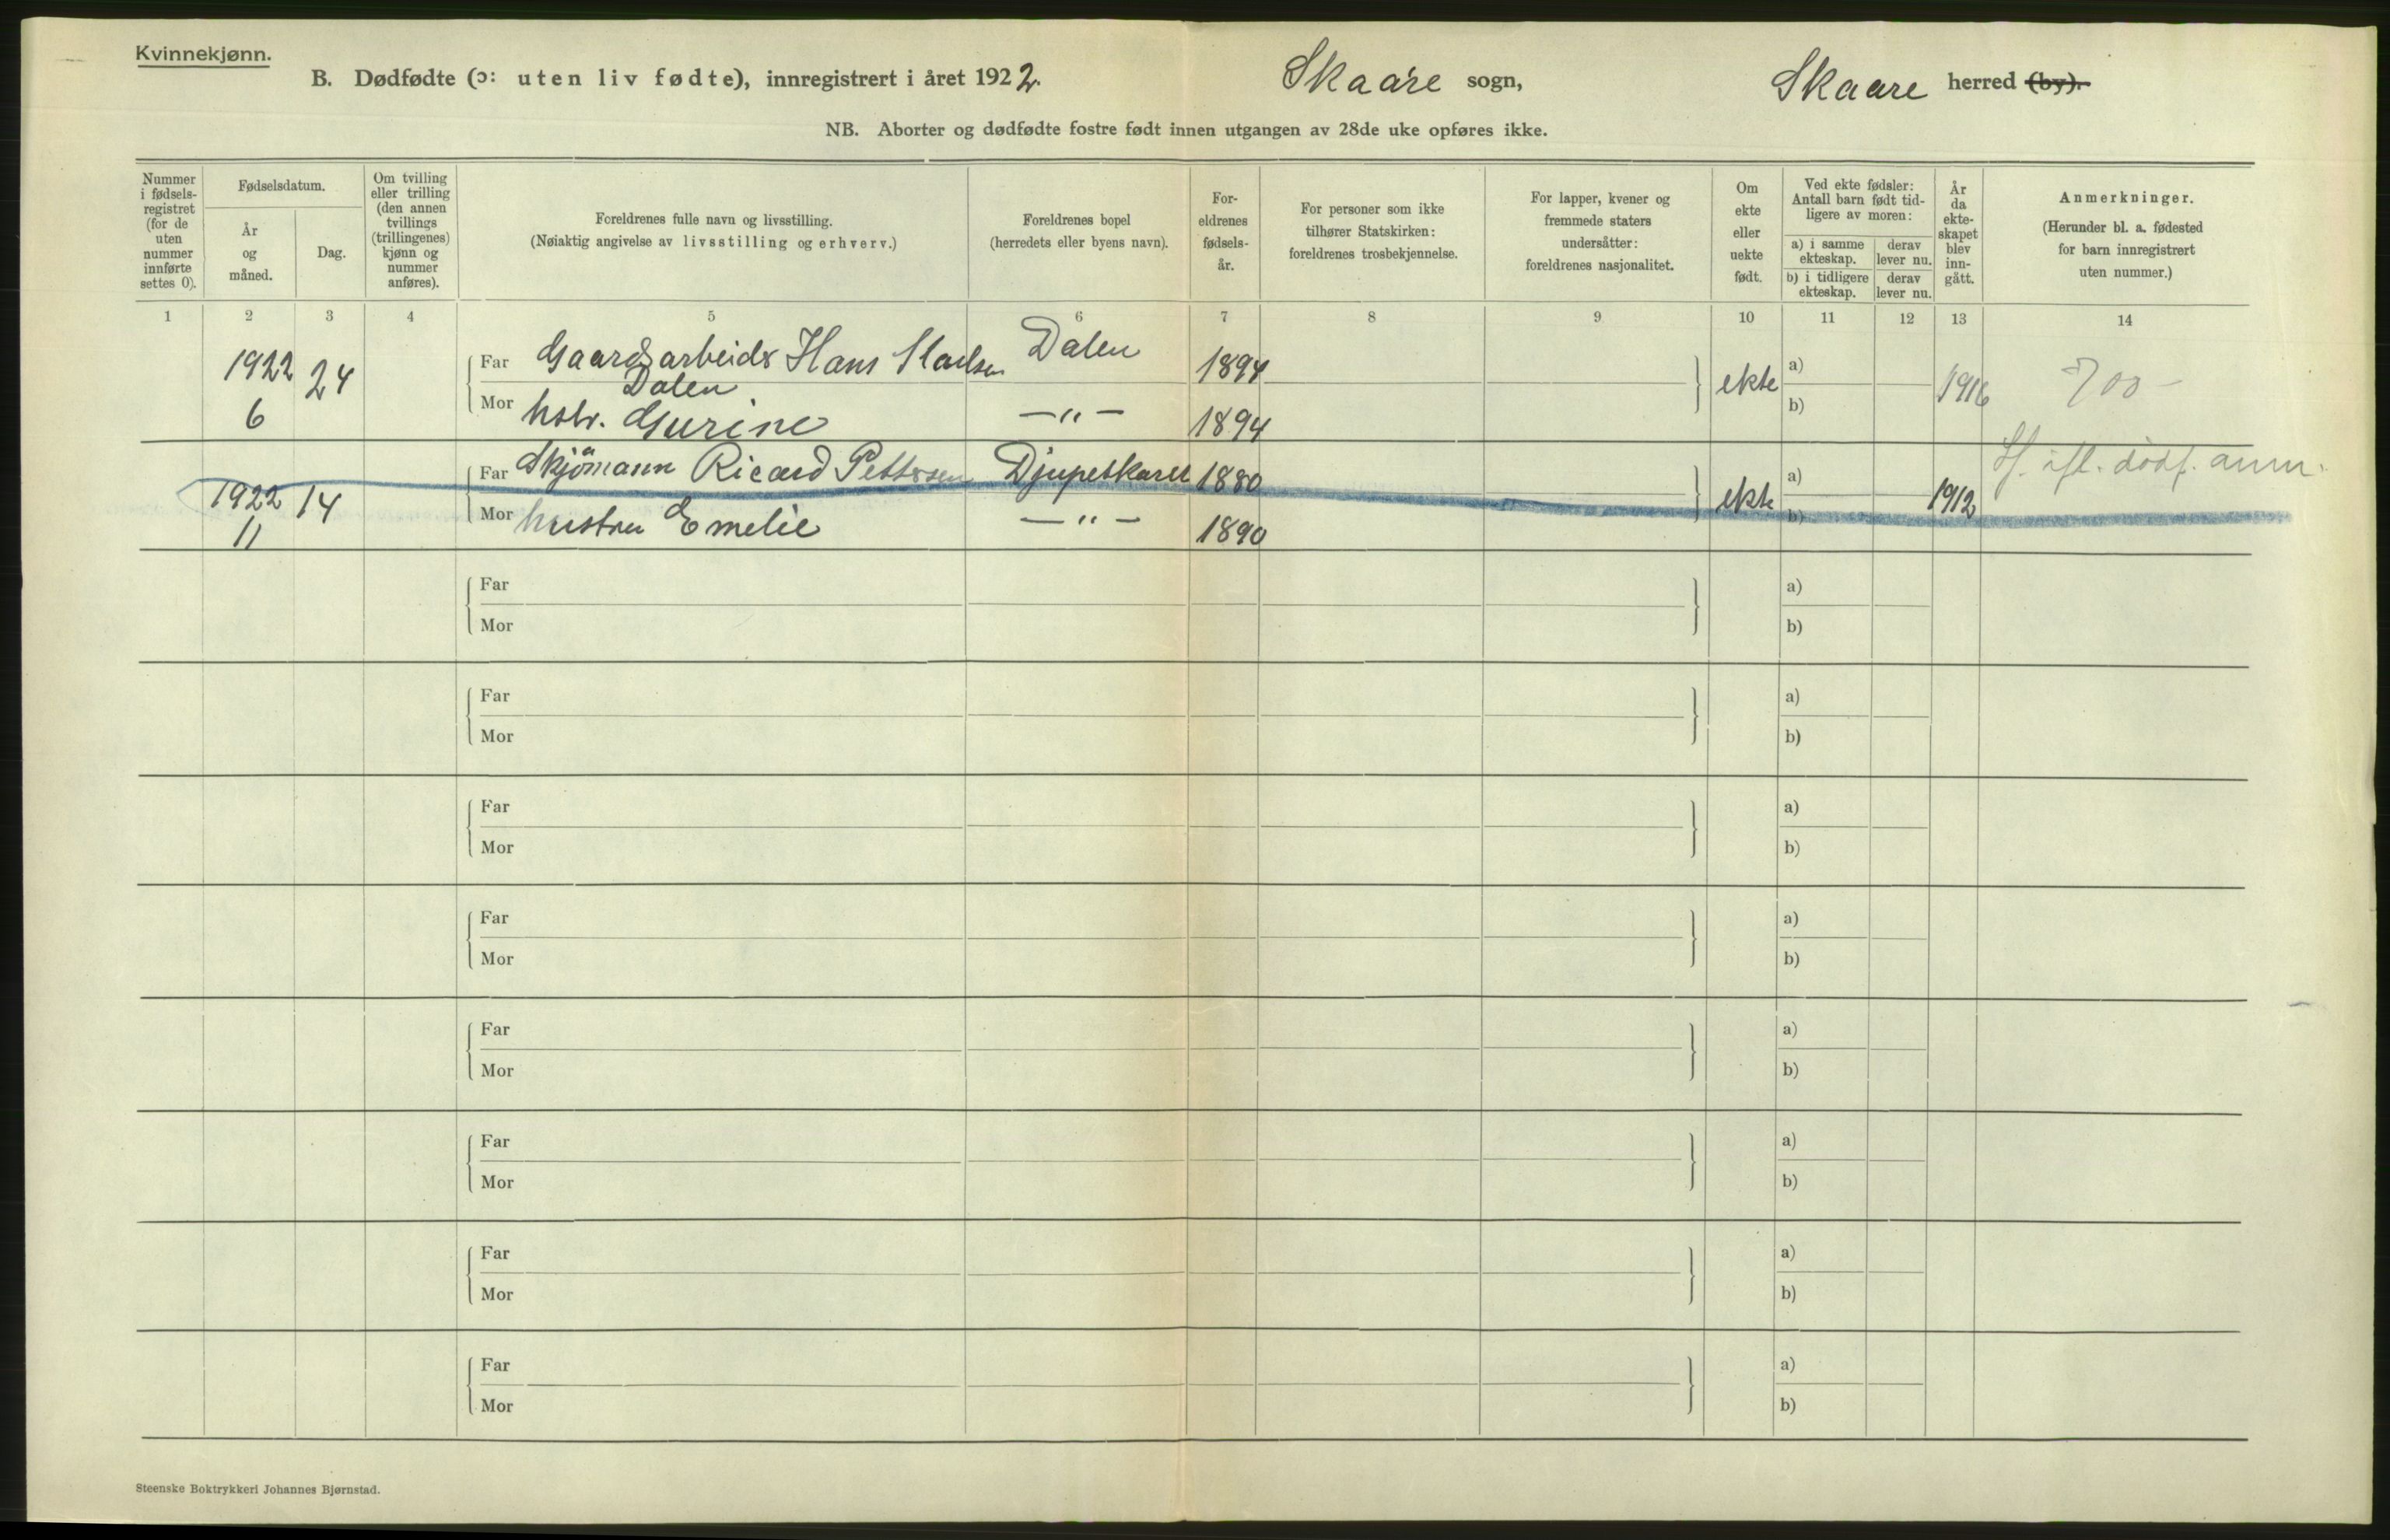 Kvinnekjønn.
B. Dødfødte (ɔ: uten liv fødte), innregistrert i året 1922. Skaare sogn, Skaare herred (by).
NB. Aborter og dødfødte fostre født innen utgangen av 28de uke opføres ikke.
Nummer i fødsels- registret (for de uten nummer innførte settes 0).
Fødselsdatum.
År og måned.
Dag.
Om tvilling eller trilling (den annen tvillings (trillingenes) kjønn og nummer anføres).
Foreldrenes fulle navn og livsstilling.
(Nøiaktig angivelse av livsstilling og erhverv.)
Foreldrenes bopel
(herredets eller byens navn).
For- eldrenes fødsels- år.
For personer som ikke tilhører Statskirken: foreldrenes trosbekjennelse.
For lapper, kvener og fremmede staters undersåtter: foreldrenes nasjonalitet.
Om ekte eller uekte født.
Ved ekte fødsler: Antall barn født tid- ligere av moren:
a) i samme ekteskap. derav lever nu.
b) i tidligere ekteskap. derav lever nu.
År da ekte- skapet blev inn- gått.
Anmerkninger.
(Herunder bl. a. fødested for barn innregistrert uten nummer.)
1 2 3 4 5 6 7 8 9 10 11 12 13 14
1922 24 Far Gaardsarbeider Hans Dalen 1894 ekte a) 1916 700 -
Dalen
6 Mor hstr. Gurine -"- 1894 b)
Far Skjömann Ricard Pettersen Djupeskaret 1880 a) dødf. anm.
1922 14 ekte 1912
11 Mor hustru Emelie -"- 1890 b)
Far a)
Mor b)
Far a)
Mor b)
Far a)
Mor b)
Far a)
Mor b)
Far a)
Mor b)
Far a)
Mor b)
Far a)
Mor b)
Far a)
Mor b)
Steenske Boktrykkeri Johannes Bjørnstad.